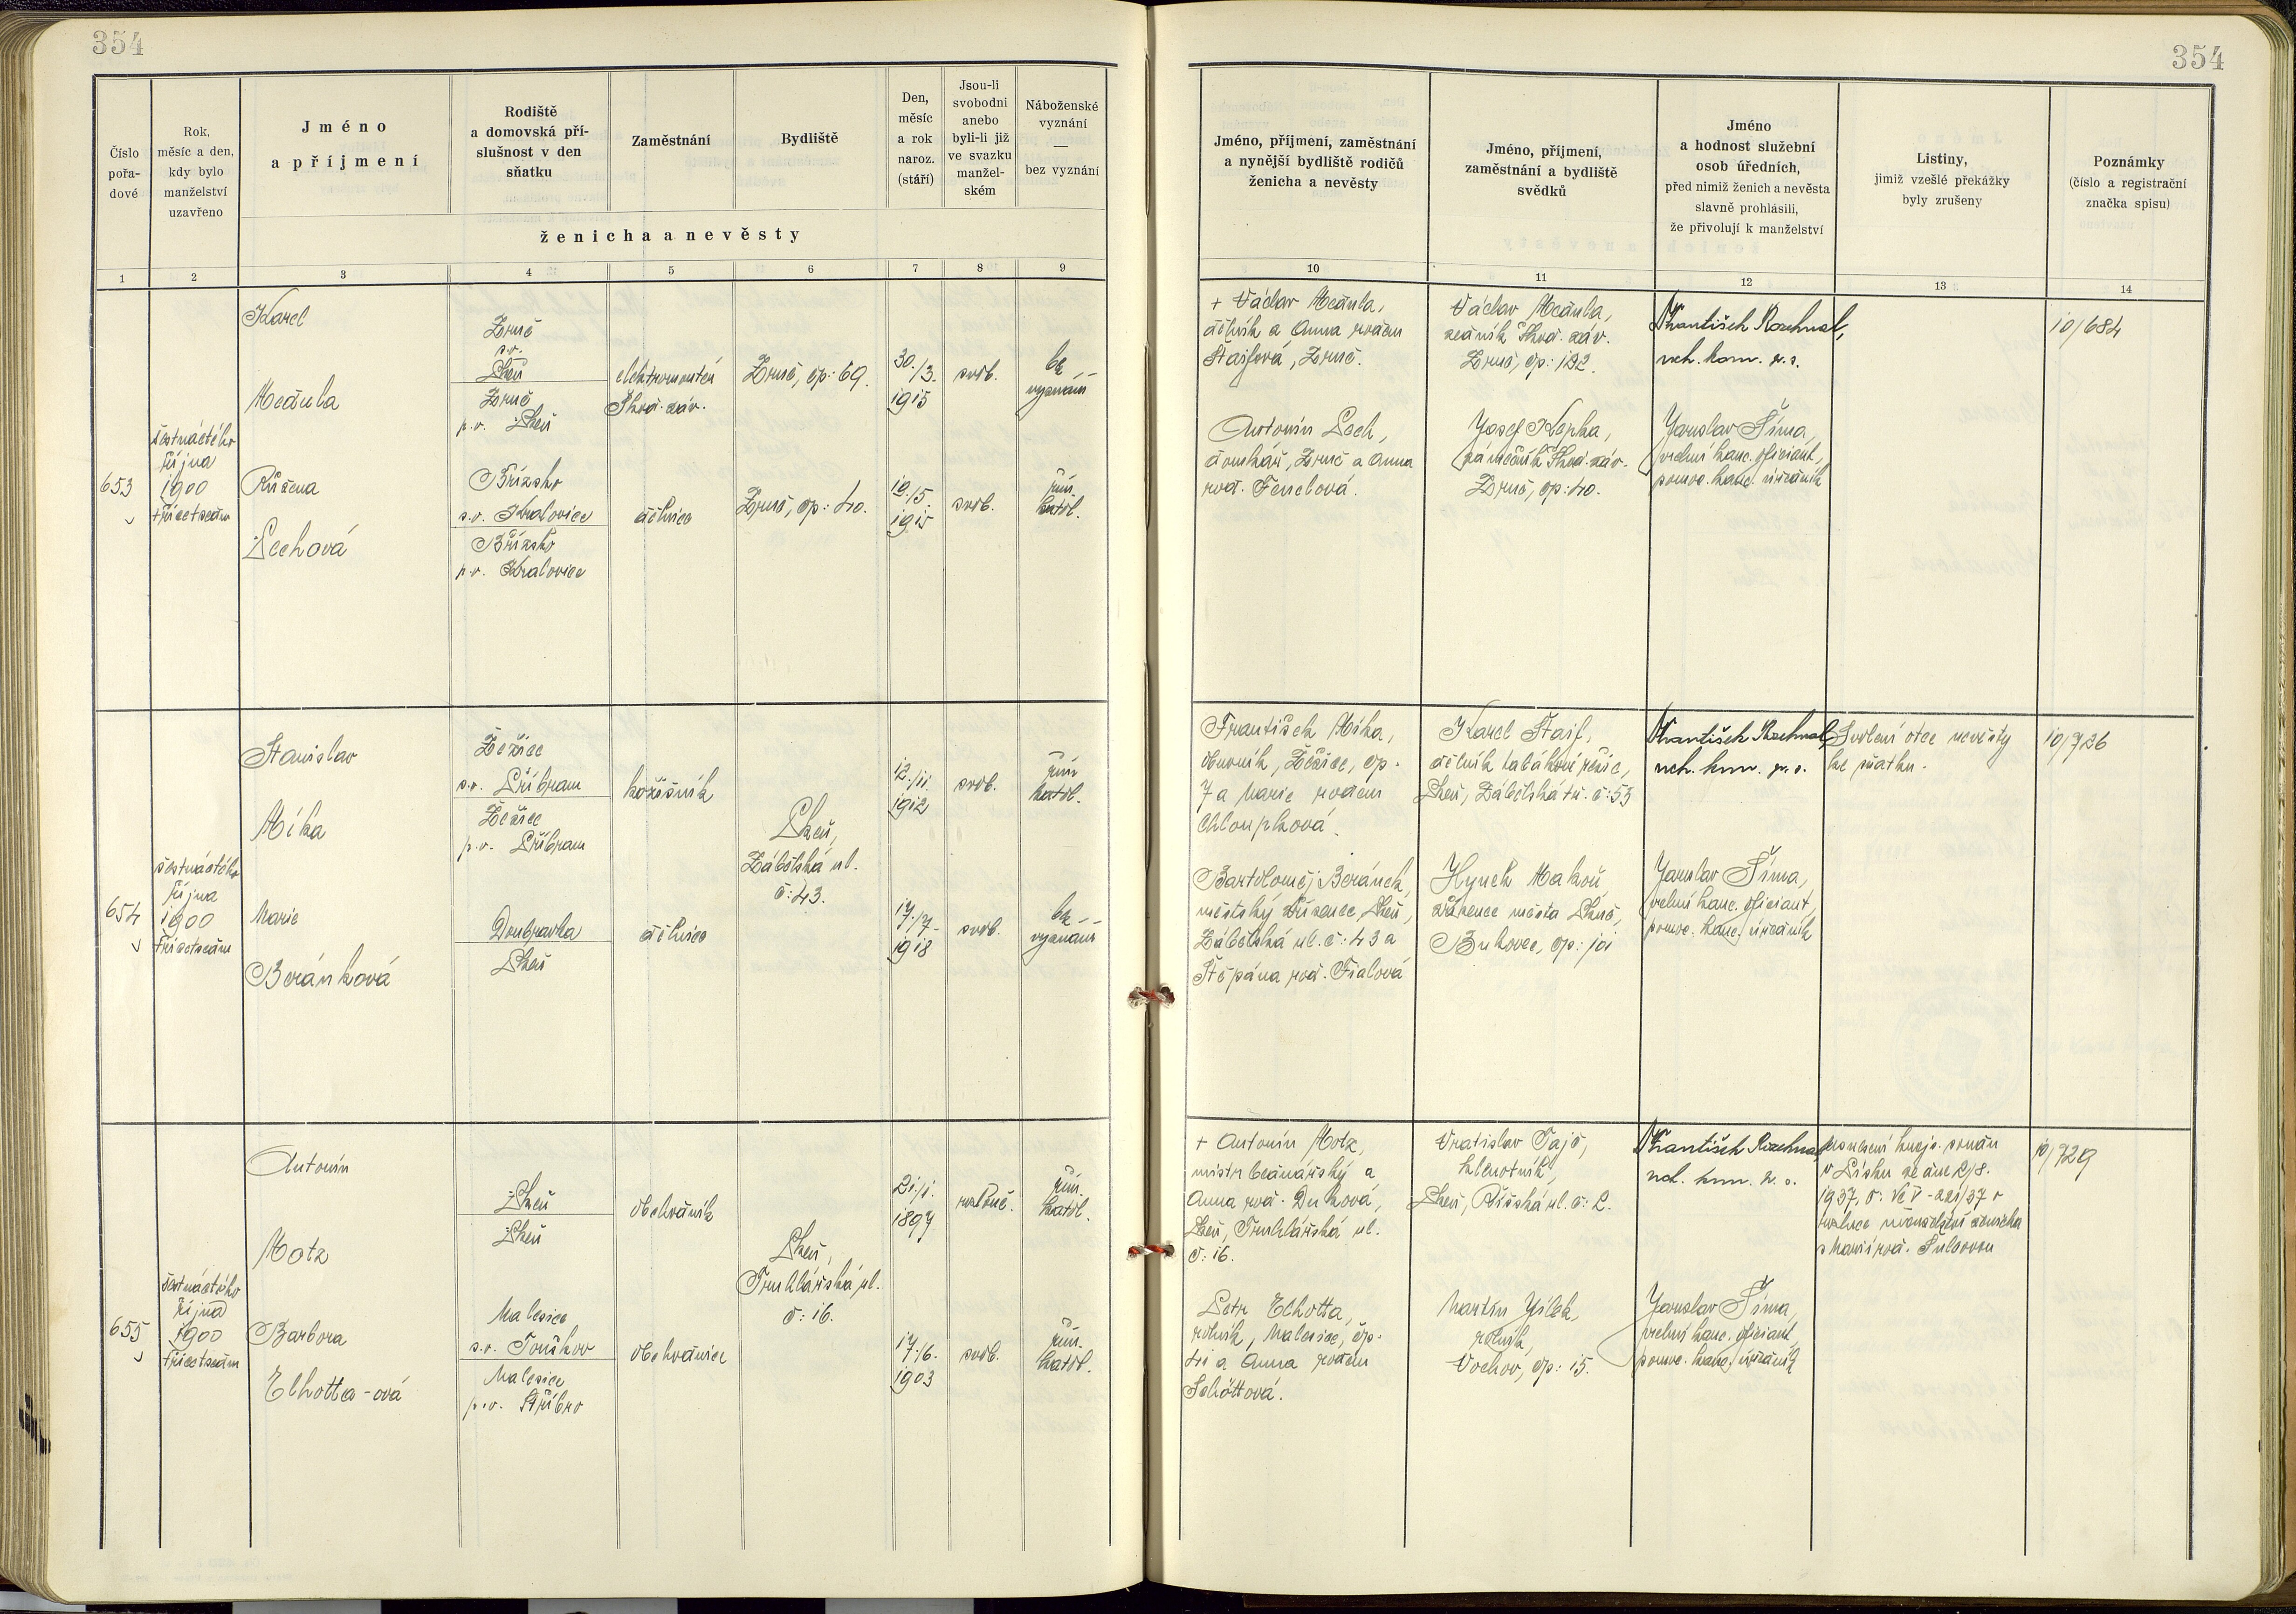 354
354
Číslo pořa-dové
Rok, měsíc a den, kdy bylo manželství uzavřeno
Jméno a příjmení
Rodiště a domovská pří-slušnost v den sňatku
Zaměstnání
Bydliště
Den, měsíc a rok naroz. (stáří)
Jsou-li svobodni anebo byli-li již ve svazku manžel-ském
Náboženské vyznání — bez vyznání
ženicha a nevěsty
Jméno, příjmení, zaměstnání a nynější bydliště rodičů ženicha a nevěsty
Jméno, příjmení, zaměstnání a bydliště svědků
Jméno a hodnost služební osob úředních, před nimiž ženich a nevěsta slavně prohlásili, že přivolují k manželství
Listiny, jimiž vzešlé překážky byly zrušeny
Poznámky (číslo a registrační značka spisu)
1 2 3 4 5 6 7 8 9 10 11 12 13 14
653
šestnáctého
října
1900
třicetsedm
Karel
Zruč
s.o.
Plzeň
Zruč
p.o. Plzeň
elektromontér
Škod. záv.
Zruč, čp: 69.
30./3.
1915
svob.
bez
vyznání
Růžena
Pechová
Břízsko
s.o. Kralovice
Břízsko
p.o. Kralovice
dělnice
Zruč, čp: 40.
1915
svob.
řím.
katol.
+ Václav
dělník a Anna rozen
Zruč.
Antonín Pech,
domkář, Zruč a Anna
roz. Fenclová.
Václav
zedník Škod. záv.
Zruč, čp: 192.
Josef
Škod. záv.
Zruč, čp: 40.
František
Jaroslav Šíma,
vrchní kanc. oficiant,
pomoc. kanc. úředník
10/684
654
šestnáctého
října
1900
třicetsedm
Stanislav
Míka
Žežice
s.o. Příbram
Žežice
p.o. Příbram
kožišník
Plzeň,
Zábělská ul.
č: 43.
12./11.
1912
svob.
řím.
katol.
Marie
Beránková
Doubravka
Plzeň
dělnice
17./7.
1918
svob.
bez
vyznání
František Míka,
obuvník, Žežice, čp.
7 a Marie rozen
Chloupková.
Bartoloměj Beránek,
městský zřízenec, Plzeň,
Zábělská ul. č: 43 a
Štěpána roz. Fialová
Karel Štajf,
dělník tabákové režie,
Plzeň, Zábělská tř. č: 53
Hynek Makoň
zřízenec města Plzně,
Bukovec, čp: 101
František
Jaroslav Šíma,
vrchní kanc. oficiant,
pomoc. kanc. úředník
Svolení otce nevěsty
ke sňatku.
10/726
655
šestnáctého
října
1900
třicetsedm
Antonín
Motz
Plzeň
Plzeň
obchodník
Plzeň,
Truhlářská ul.
č: 16.
21./1.
1897
rozlouč.
řím.
katol.
Barbora
Elhotta-ová
Malesice
s.o. Touškov
Malesice
p.o. Stříbro
obchodnice
17./6.
1903
svob.
řím.
katol.
+ Antonín Motz,
mistr bednářský a
Anna roz. Duková,
Plzeň, Truhlářská ul.
č: 16.
Petr Elhotta,
rolník, Malesice, čp.
41 a Anna rozen
Schöttová.
Vratislav Tajč,
klenotník,
Plzeň, Říšská ul. č: 2.
Martin Jílek,
rolník,
Vochov, čp: 15.
František
Jaroslav Šíma,
vrchní kanc. oficiant,
pomoc. kanc. úředník
Usnesení krajs. soudu
v Písku ze dne 2/8.
1937, č:
rozluce manželství ženicha
s Marií roz. Šulcovou
10/729